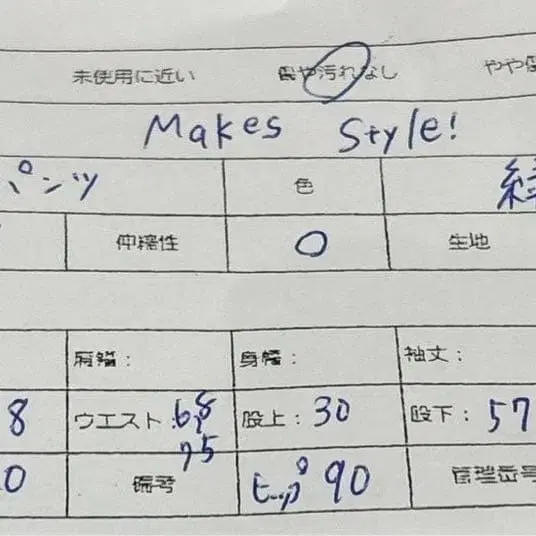 未使用に近い 傷や汚れなし やや
Makes Style!
パンツ 色
伸縮性 ○ 生地
肩幅: 身幅: 袖丈:
8 ウエスト:68 股上:30 股下:57
75
0 備考 ヒップ90 管理番号